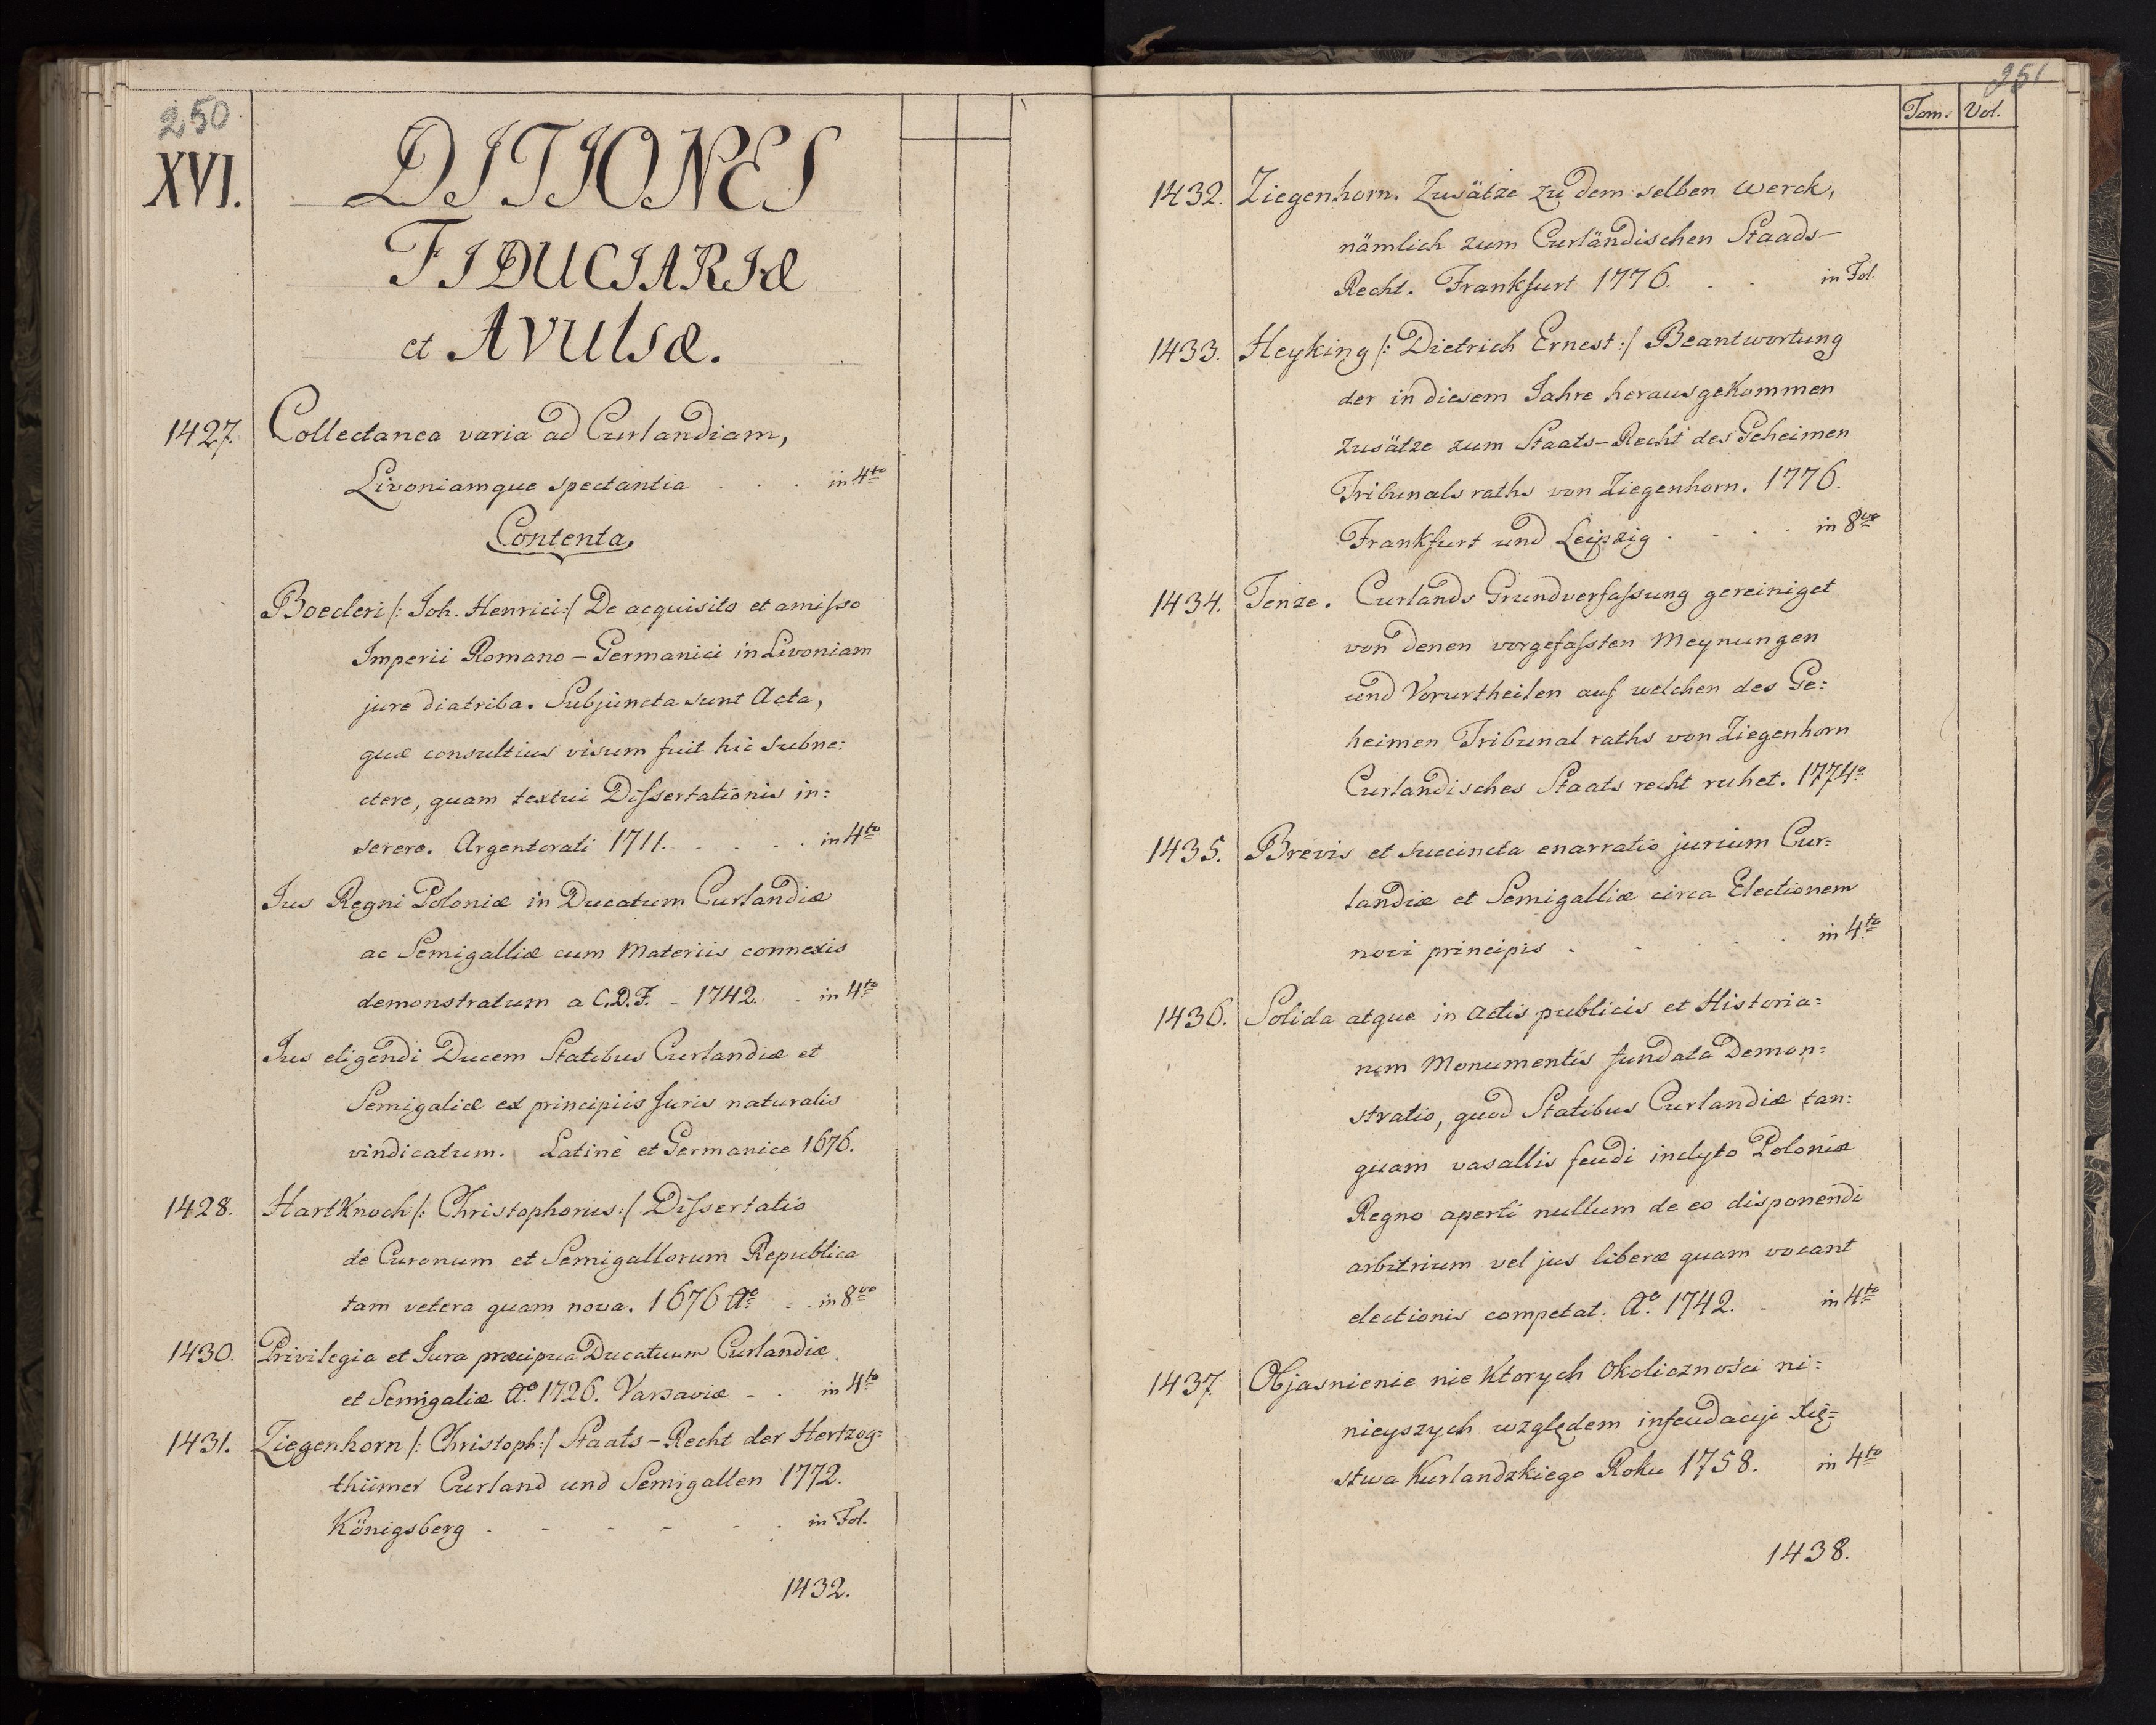 250
XVI.
DITIONES
FIDUCIARIÆ
et AVULSÆ.
1427. Collectanea varia ad Curlandiam,
Livoniamque spectantia . . . in 4to
Contenta.
Boecleri /: Joh. Henrici :/ De acquisito et amiſso
Imperii Romano - Germanici in Livoniam
jure diatriba. Subjuncta sunt Acta,
quæ consultius visum fuit hic subne:
ctere, quam textui Diſsertationis in:
serere. Argentorati 1711. . . . . in 4to
Jus Regni Poloniæ in Ducatum Curlandiæ
ac Semigalliæ cum Materiis connexis
demonstratum a C.D.F. - 1742. . in 4to
Jus eligendi Ducem Statibus Curlandiæ et
Semigaliæ ex principiis Juris naturalis
vindicatum. Latinè et Germanice 1676.
1428. HartKnoch /: Christophorus :/ Diſsertatio
de Curonum et Semigallorum Republica
tam vetera quam nova. 1676 Ao . . in 8vo
1430. Privilegia et Jura præcipua Ducatuum Curlandiæ
et Semigaliæ Ao. 1726. Varsaviæ - . in 4to
1431. Ziegenhorn /: Christoph :/ Staats - Recht der Hertzog:
thümer Curland und Semigallen 1772.
Königsberg . - - - - . in Fol.
1432.
251
Tom. Vol.
1432. Ziegenhorn. Zusätze zu dem selben Werck,
nämlich zum Curländischen Staads-
Recht. Frankfurt 1776. . . in Fol.
1433. Heyking /: Dietrich Ernest :/ Beantwortung
der in diesem Jahre herausgeKommen
Zusätze zum Staats - Recht des Geheimen
Tribunals raths von Ziegenhorn. 1776.
Frankfurt und Leipzig . . . . in 8vo
1434. Tenze. Curlands Grundverfaſsung gereiniget
von denen vorgefaſsten Meynungen
und Vorurtheilen auf welchen des Ge:
heimen Tribunal raths von Ziegenhorn
Curlandisches Staats recht ruhet. 1774o
1435. Brevis et succincta enarratio jurium Cur:
landiæ et Semigalliæ circa Electionem
novi principis . - . . . in 4to
1436. Solida atque in Actis publicis et Historia:
rum Monumentis fundata Demon:
stratio, quod Statibus Curlandiæ tan:
quam vasallis feudi inclyto Poloniæ
Regno aperti nullum de eo disponendi
arbitrium vel jus liberæ quam vocant
electionis competat. Ao. 1742. . in 4to
1437. Objasnienie nie Ktorych Okoliczności ni:
nieyszych względem infeudacyi Xię:
stwa Kurlandzkiego Roku 1758. in 4to
1438.